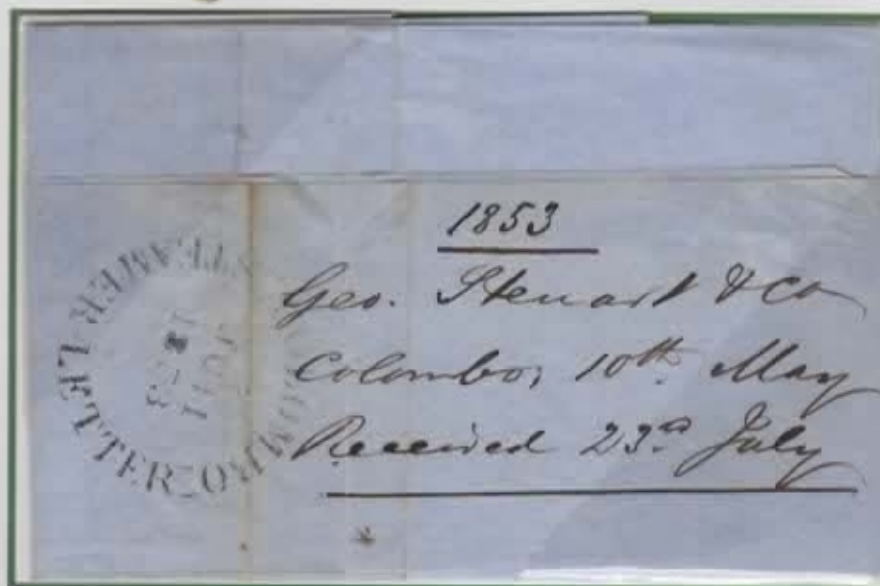 1853
Geo. Steuart & Co
Colombo, 10th May
Received 23d July
STEAMER LETTER